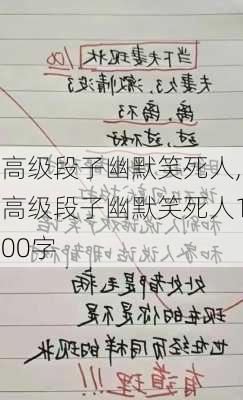 当下夫妻现状 100
夫妻久了,激情没了
离,离不了
过,过不好
高级段子幽默笑死人,
高级段子幽默笑死人1
00字
处处都是毛病
现在的你是不是
也在经历同样的现状
有道理!!!